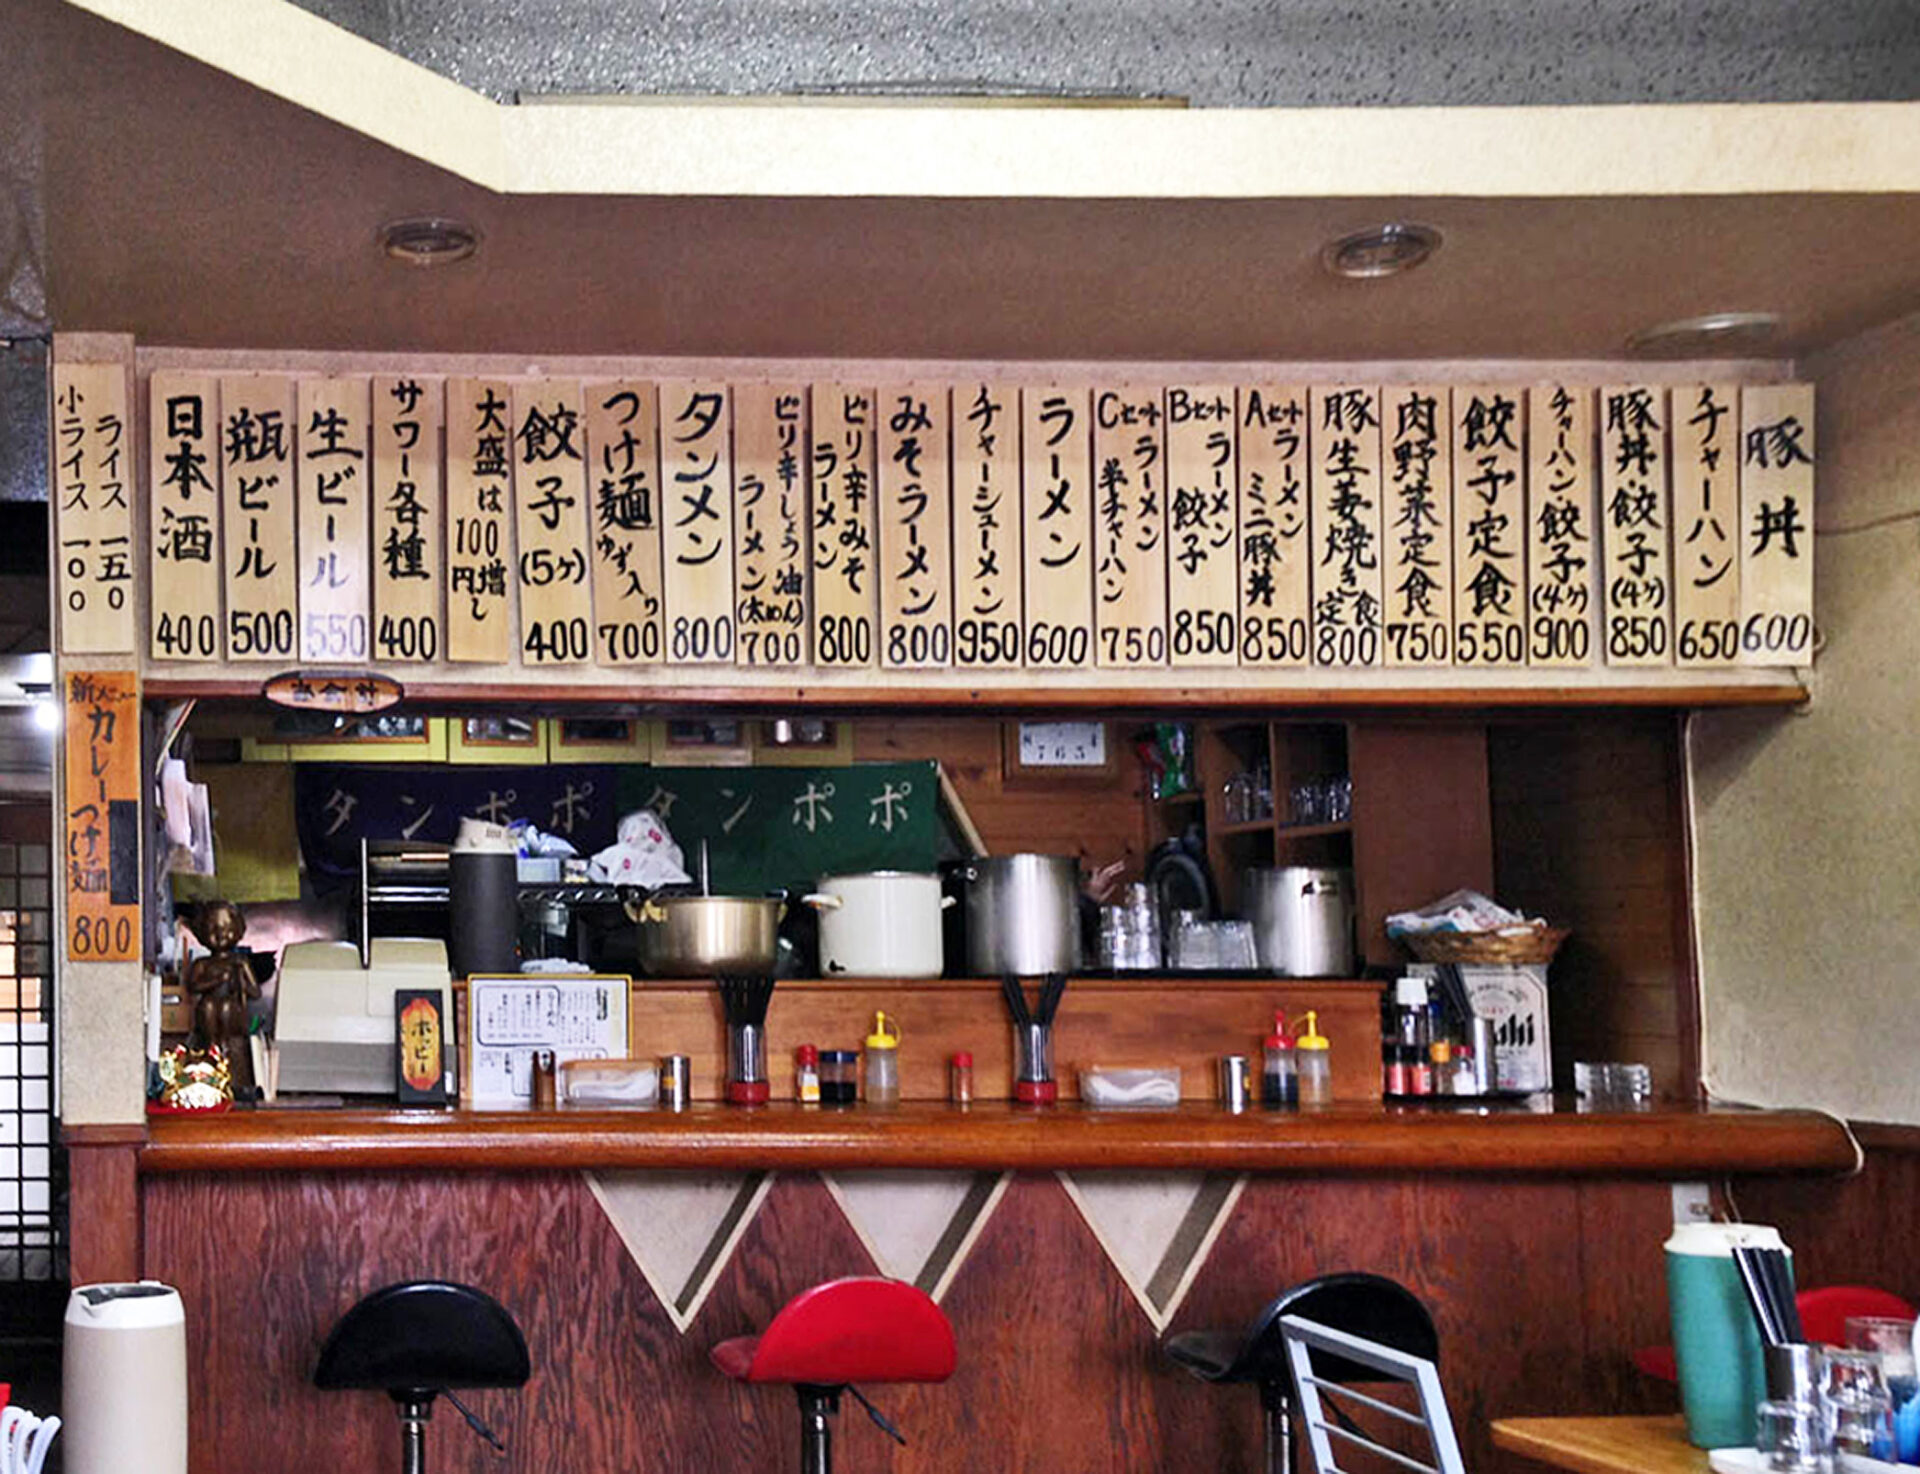 豚丼 600
チャーハン 650
豚丼・餃子(4ヶ) 850
チャーハン・餃子(4ヶ) 900
餃子定食 550
肉野菜定食 750
豚生姜焼き定食 800
Aセット ラーメン ミニ豚丼 850
Bセット ラーメン 餃子 850
Cセット ラーメン 半チャーハン 750
ラーメン 600
チャーシューメン 950
みそラーメン 800
ピリ辛みそラーメン 800
ピリ辛しょう油ラーメン(太めん) 700
タンメン 800
つけ麺 ゆず入り 700
餃子(5ヶ) 400
大盛は100円増し
サワー各種 400
生ビール 550
瓶ビール 500
日本酒 400
ライス 一五〇
小ライス 一〇〇
新メニュー カレーつけ麺 800
お会計
タンポポ
タンポポ
ホッピー